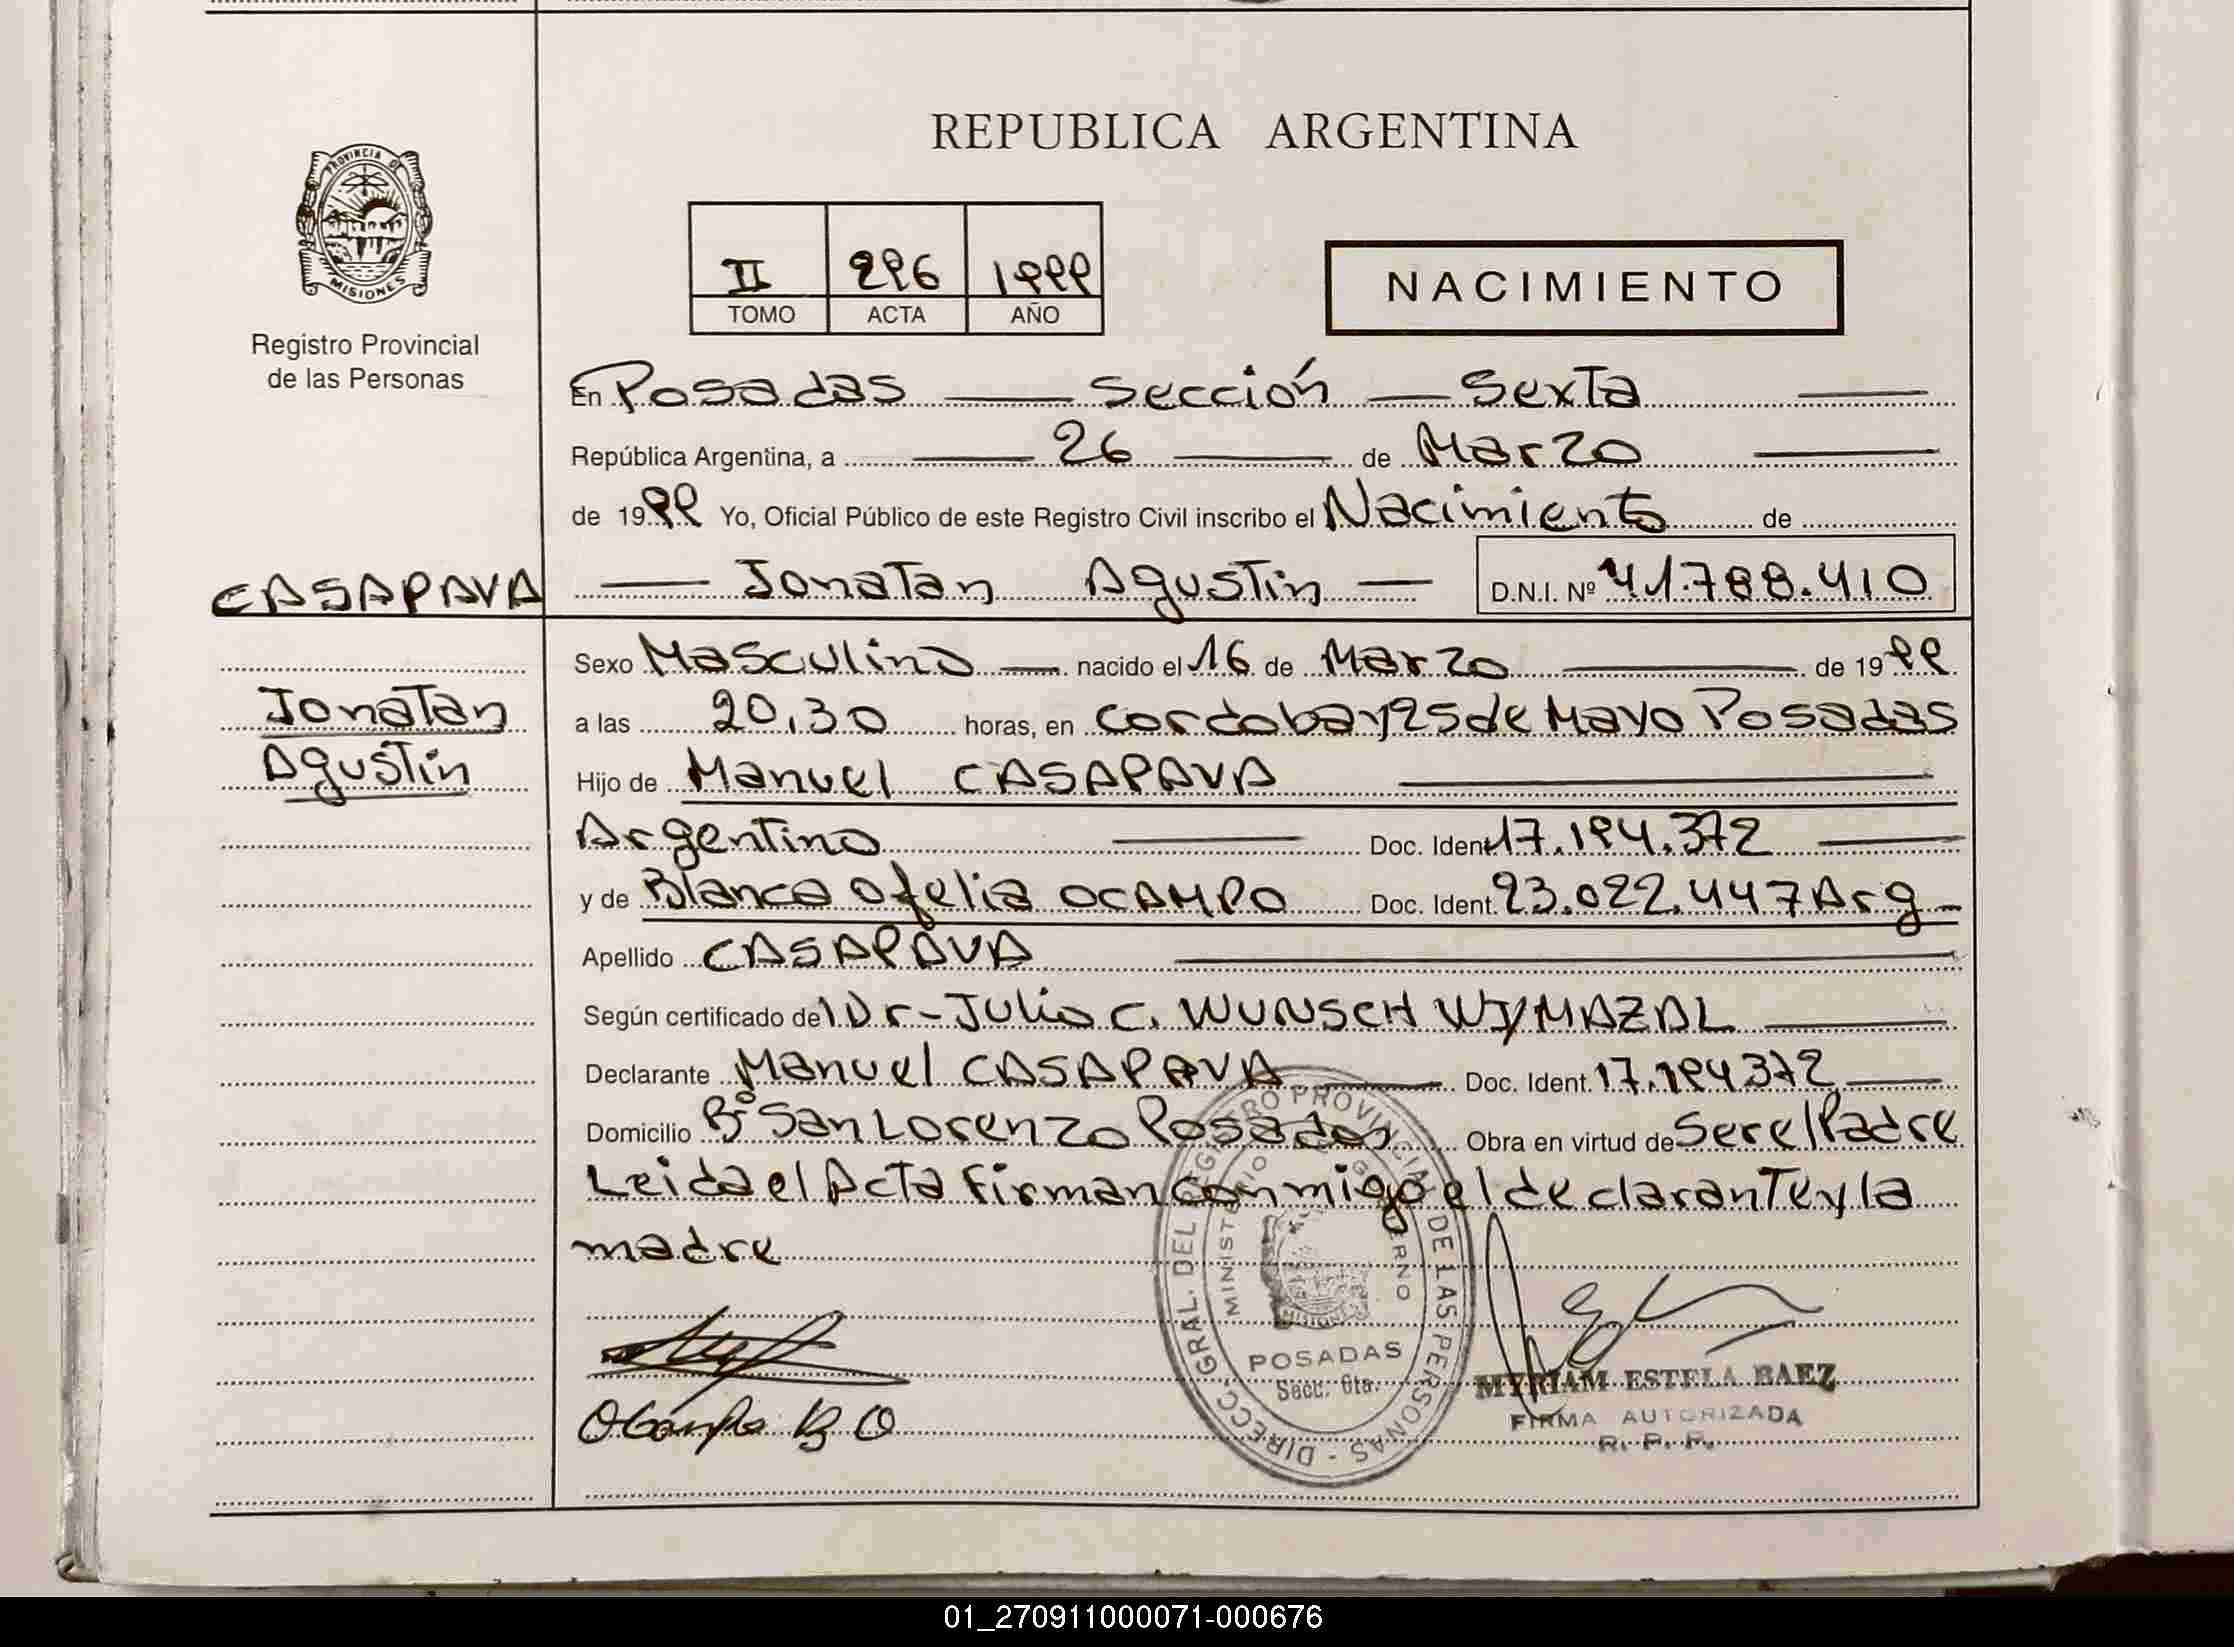 REPUBLICA ARGENTINA
PROVINCIA DE MISIONES
Registro Provincial
de las Personas
II 296 1999
TOMO ACTA AÑO
NACIMIENTO
En Posadas — Sección — Sexta —
República Argentina, a — 26 — de Marzo —
de 1999 Yo, Oficial Público de este Registro Civil inscribo el Nacimiento de
CASAPAVA — Jonatan Agustin — D.N.I. Nº 41.788.410
Jonatan
Agustin
Sexo Masculino — nacido el 16 de Marzo — de 1999
a las 20,30 horas, en Cordoba y 25 de Mayo Posadas
Hijo de Manuel CASAPAVA —
Argentino — Doc. Ident. 17.194.372 —
y de Blanca Ofelia OCAMPO Doc. Ident. 23.022.447 Arg —
Apellido CASAPAVA —
Según certificado del Dr - Julio C. WUNSCH WYMAZAL —
Declarante Manuel CASAPAVA — Doc. Ident. 17.194372 —
Domicilio Bº San Lorenzo Posadas Obra en virtud de Ser el Padre
Leida el Acta Firman conmigo el declarante y la
madre
DIRECC. GRAL. DEL REGISTRO PROVINCIAL DE LAS PERSONAS -
MINISTERIO DE GOBIERNO
MISIONES
POSADAS
Secc. 6ta.
Ocampo B O
MYRIAM ESTELA BAEZ
FIRMA AUTORIZADA
R. P. P.
01_270911000071-000676